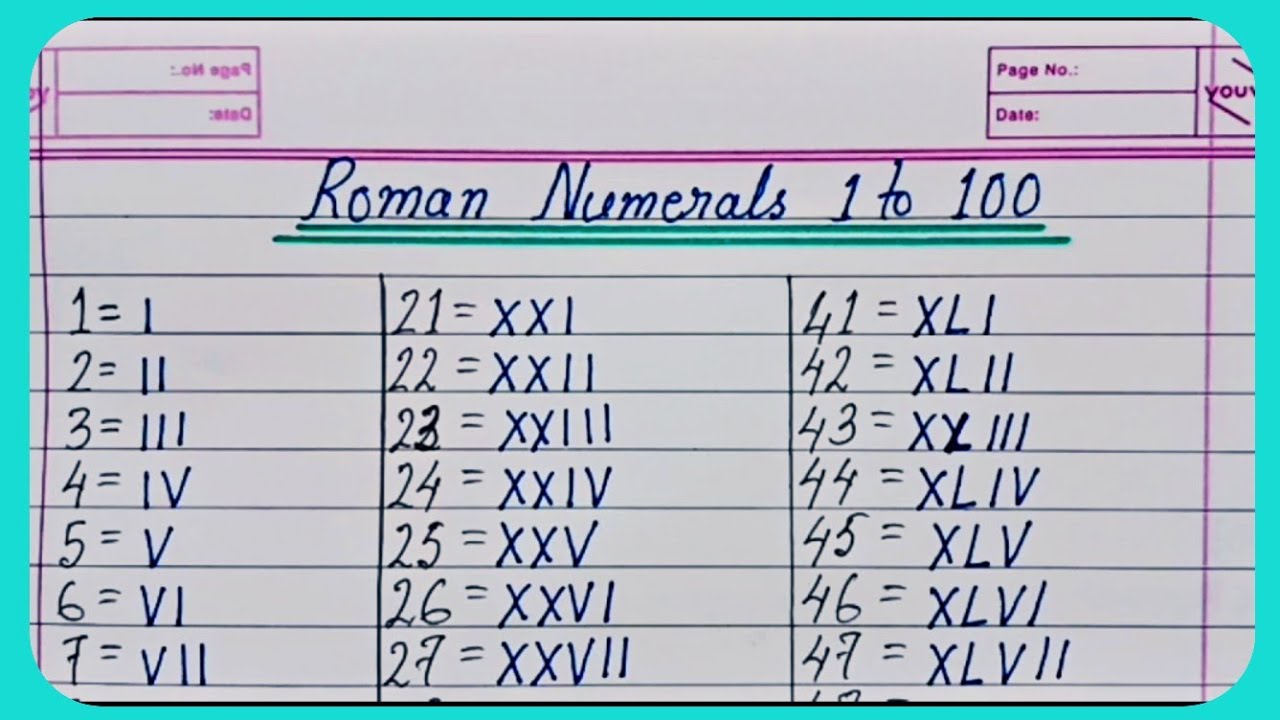 Page No.:
Date:
Page No.:
Date:
Roman Numerals 1 to 100
1 = I 21 = XXI 41 = XLI
2 = II 22 = XXII 42 = XLII
3 = III 23 = XXIII 43 = XLIII
4 = IV 24 = XXIV 44 = XLIV
5 = V 25 = XXV 45 = XLV
6 = VI 26 = XXVI 46 = XLVI
7 = VII 27 = XXVII 47 = XLVII